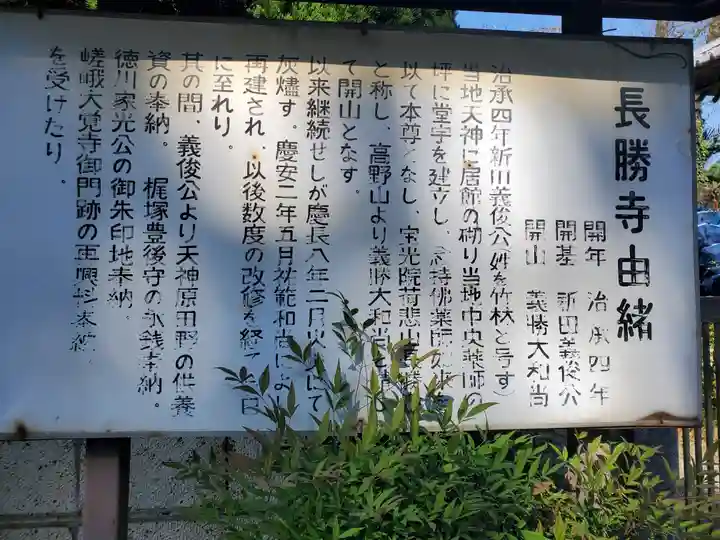 長勝寺由緒
開年 治承四年
開基 新田義俊公
開山 義勝大和尚
治承四年新田義俊公(姓を竹林と号す)
当地天神に居館の砌り当地中央薬師の
坪に堂宇を建立し、念持佛薬師如来を
以て本尊となし、宝光院荷悲山長勝寺
と称し、高野山より義勝大和尚を請し
て開山となす。
以来継続せしが慶長八年二月火災にて
灰燼す。慶安二年五月祐範和尚により
再建され、以後数度の改修を経て今日
に至れり。
其の間、義俊公より天神原田野の供養
資の奉納。梶塚豊後守の永銭奉納。
徳川家光公の御朱印地奉納。
嵯峨大覚寺御門跡の再興杉奉納
を受けたり。